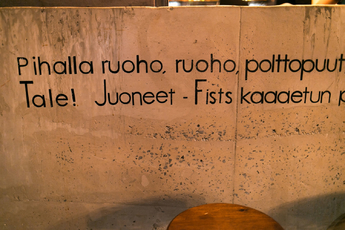 Pihalla ruoho, ruoho, polttopuut
Tale! Juoneet - Fists kaaaetun p